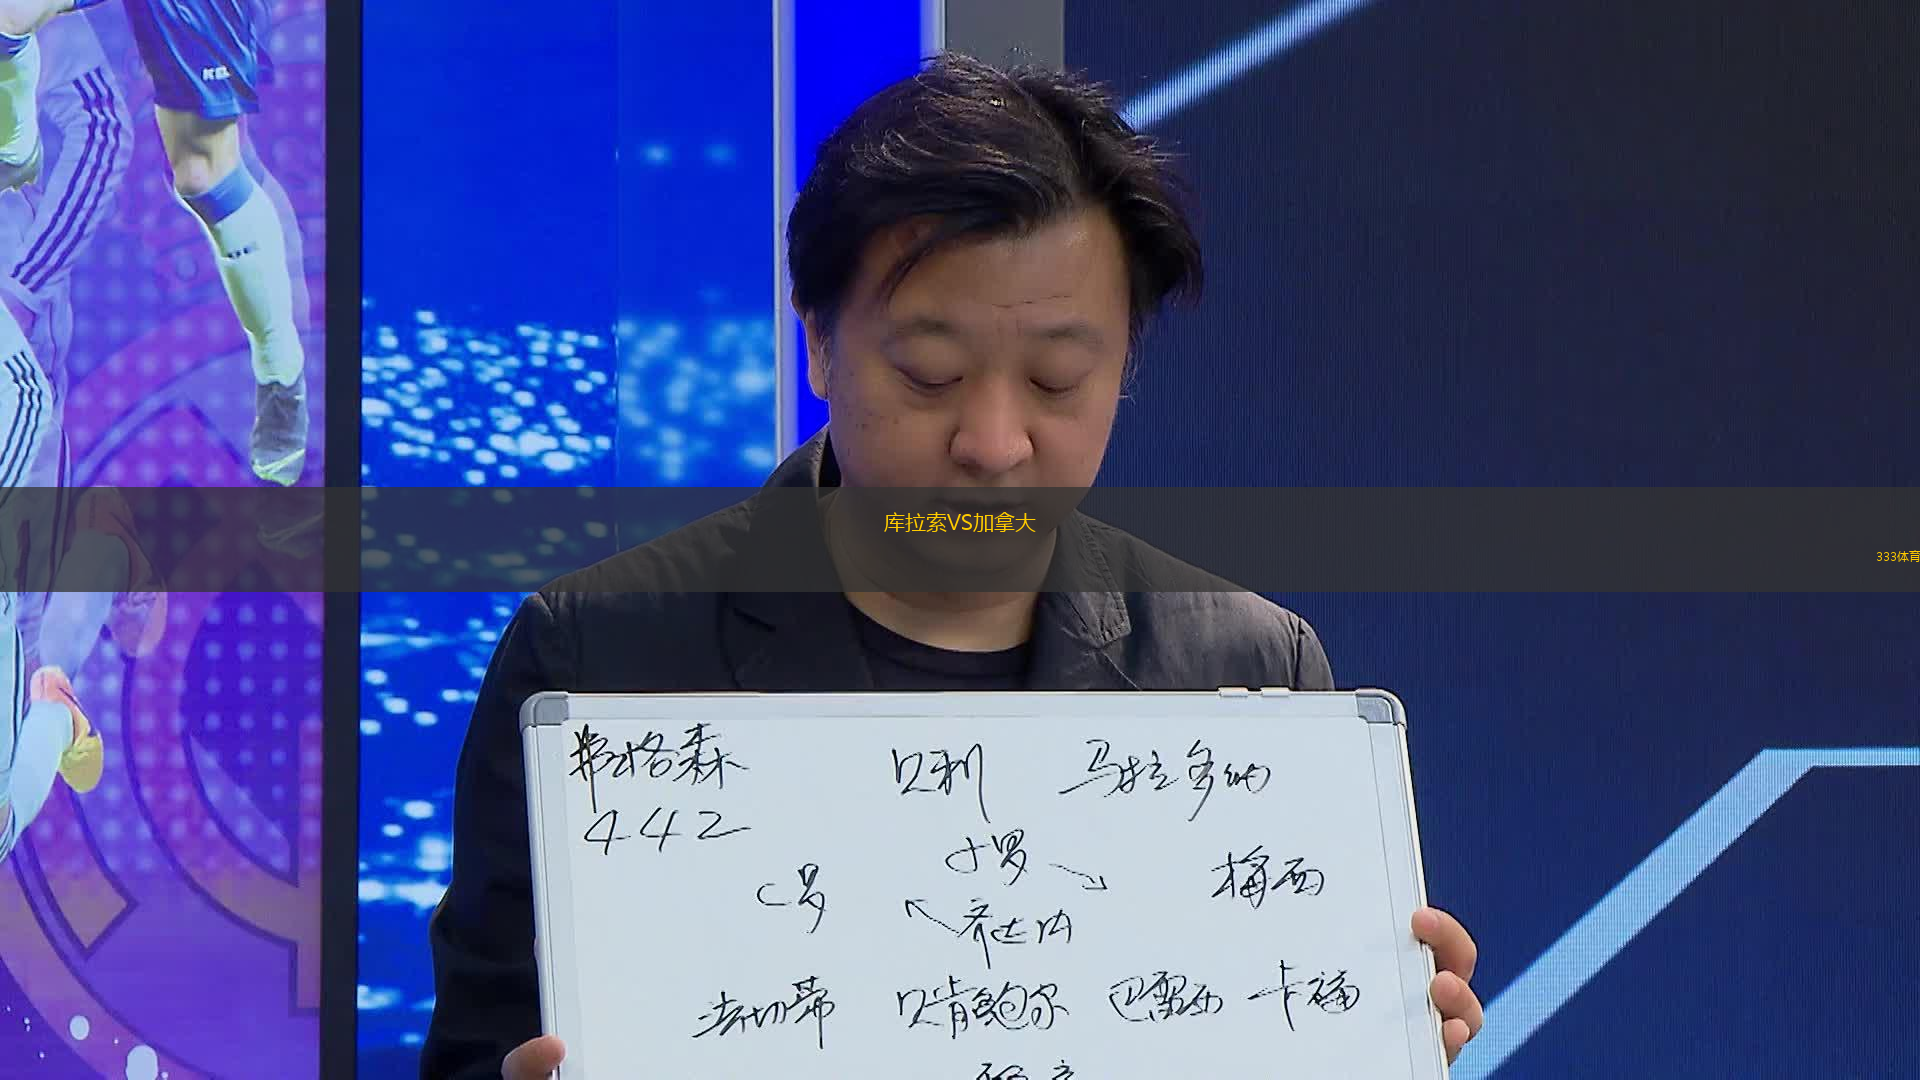 KEL
库拉索VS加拿大
333体育
弗格森 贝利 马拉多纳
442
小罗
C罗 梅西
齐达内
法切蒂 贝肯鲍尔 巴雷西 卡福